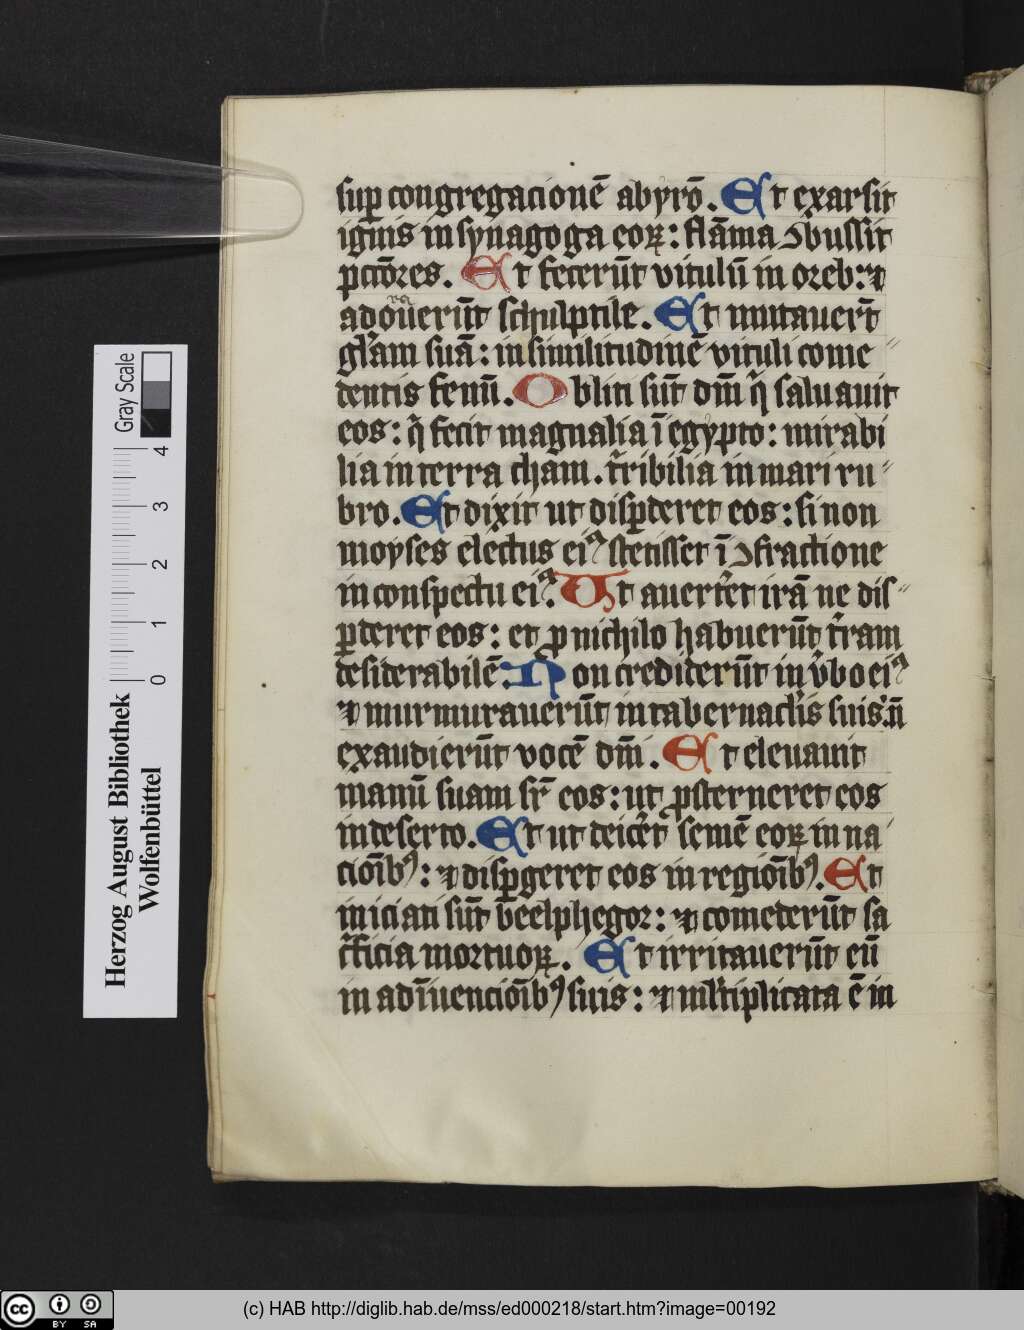 suꝑ congregacionē abyrō. Et exarsit
ignis in synagoga eoꝝ: flāma ꝯbussit
pctōres. Et fecerūt vitulū in oreb: ⁊
adoraūerūt schulptile. Et mutauerūt
gl̄am suā: in similitudinē vituli come〃
dentis fenū. Obliti sūt dm̄ qͥ saluauit
eos: qͥ fecit magnalia ī egypto: mirabi
lia in terra cham. t̄ribilia in mari ru〃
bro. Et dixit ut disꝑderet eos: si non
moyses electus eiꝰ stetisset ī ꝯfractione
in conspectu eiꝰ. Ut auert̄et irā ne dis〃
ꝑderet eos: et ꝓ nichilo habuerūt t̄ram
desiderabilē. Non crediderūt in v̄bo eiꝰ
⁊ murmurauerūt in tabernacl̄is suis: n̄
exaudierūt vocē dn̄i. Et eleuauit
manū suam sr̄ eos: ut ꝓsterneret eos
in deserto. Et ut deic̄et semē eoꝝ in na
cioībꝰ: ⁊ disꝑgeret eos in regioībꝰ. Et
iniciati sūt beelphegor: ⁊ comederūt sa
c̄ficia mortuoꝝ. Et irritauerūt eū
in adīuencioībꝰ suis: ⁊ ml̄tiplicata ē in
Herzog August Bibliothek
Wolfenbüttel
Gray Scale
0 1 2 3 4
cc BY SA
(c) HAB http://diglib.hab.de/mss/ed000218/start.htm?image=00192